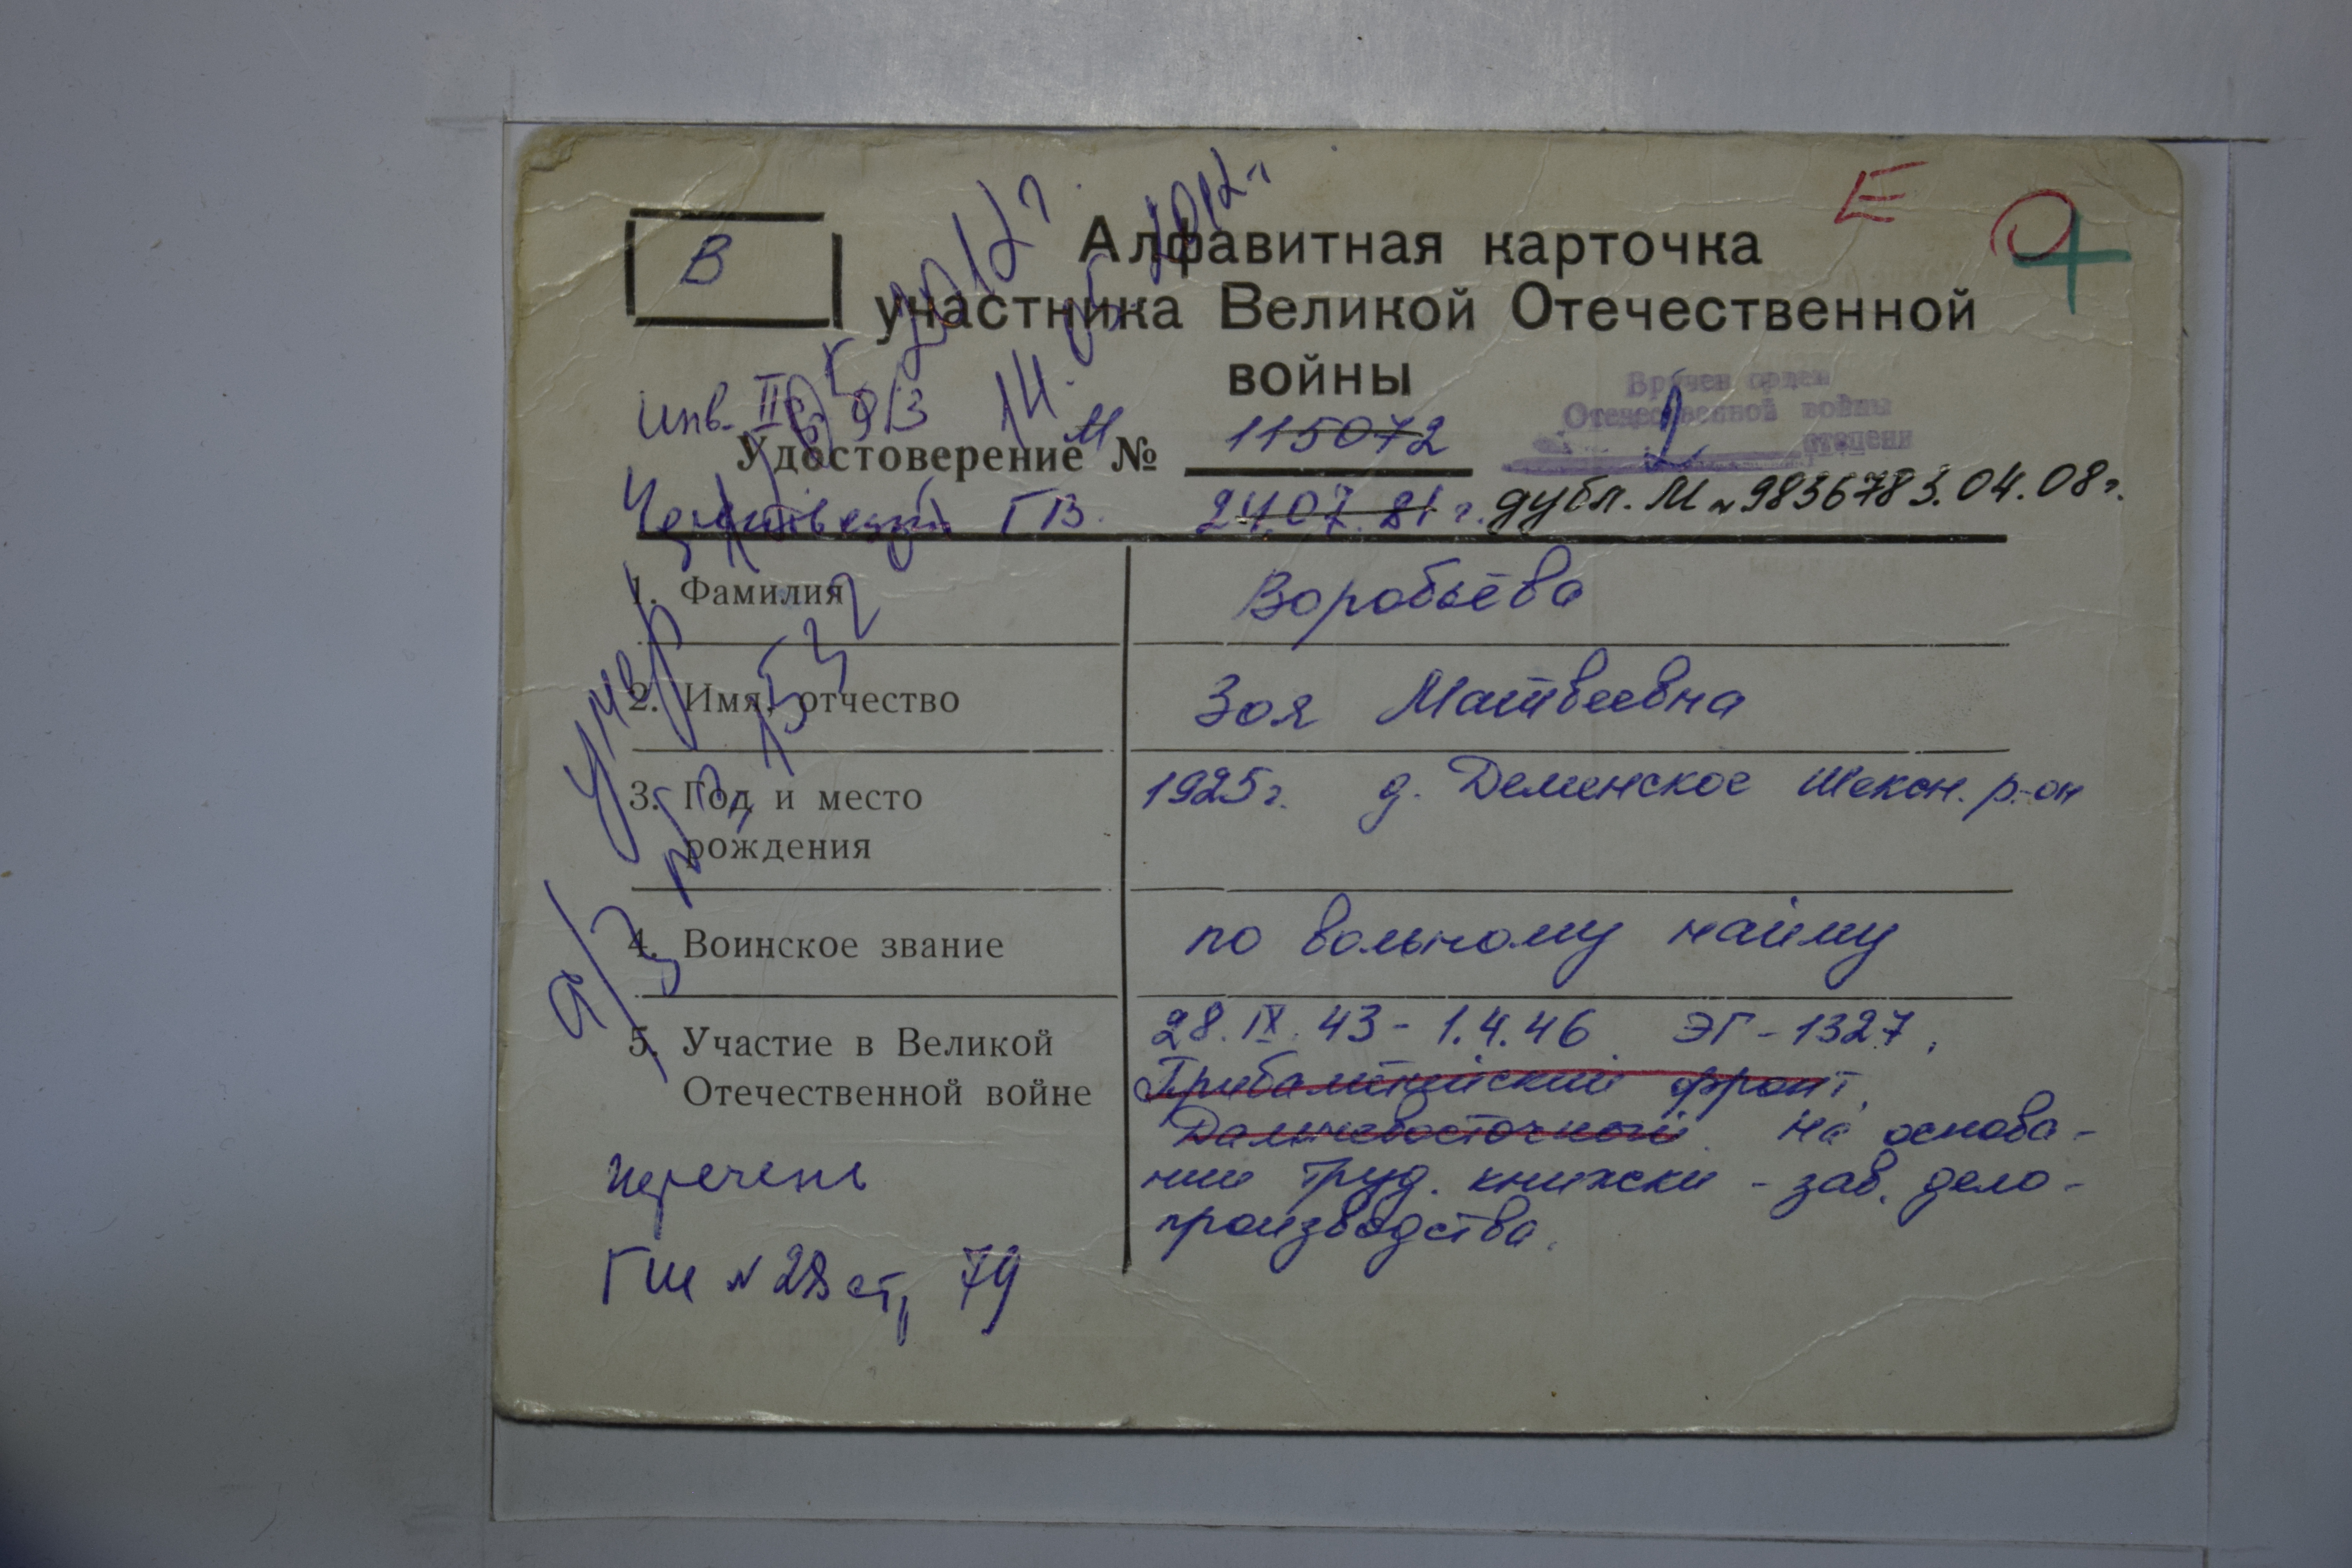 Е
В
Алфавитная карточка
участника Великой Отечественной
войны
2012г
14.05.2012г
Инв. II гр. 9/3
Вручен орден
Отечественной войны
2 степени
Удостоверение М № 115072
ГВ. 24.07.81г. дубл. М № 983678 3.04.08г.
1. Фамилия Воробьёва
2. Имя, отчество Зоя Матвеевна
3. Год и место рождения 1925г. д. Деменское Шексн. р-он
4. Воинское звание по вольному найму
5. Участие в Великой Отечественной войне 28.IX.43-1.4.46. ЭГ-1327,
Прибалтийский фронт,
Дальневосточный. На основа-
нии труд. книжки - зав. дело-
производства.
умер
а/з № 1532
перечень
ГШ № 28 ст, 79